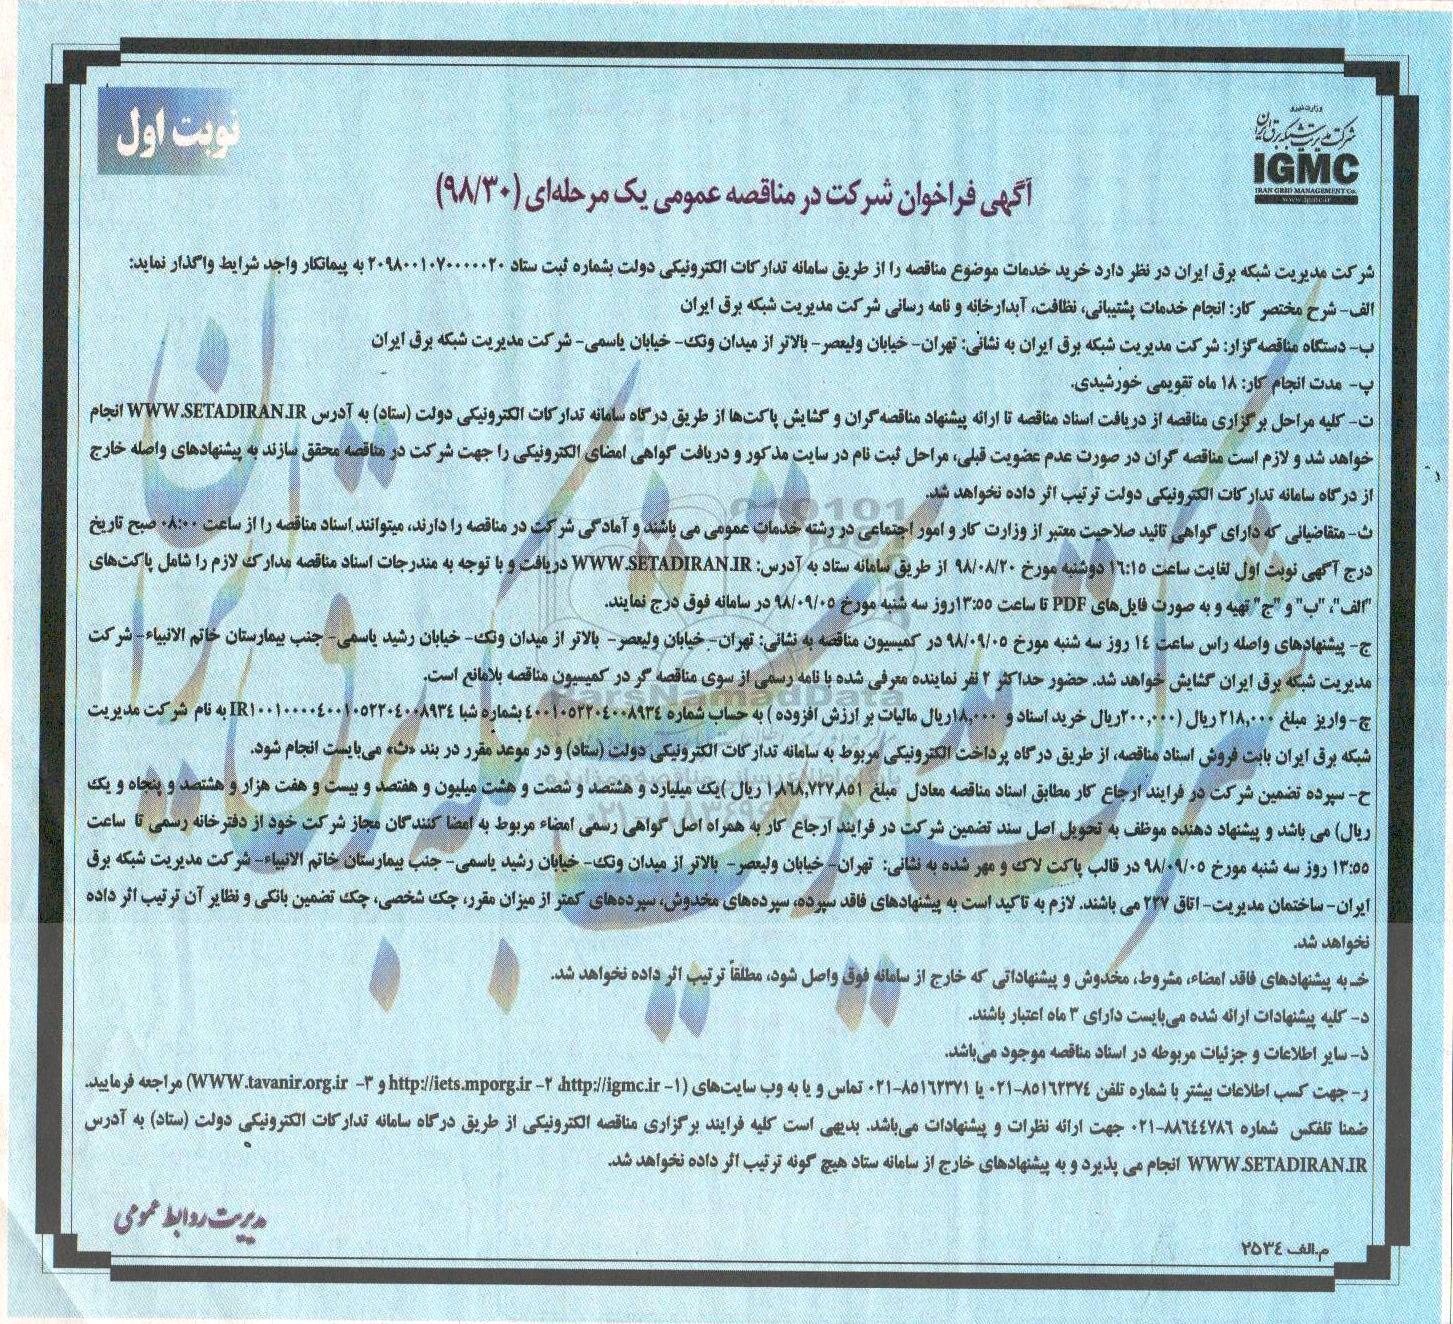 وزارت نیرو
شرکت مدیریت شبکه برق ایران
IGMC
IRAN GRID MANAGEMENT Co.
www.igmc.ir
نوبت اول
آگهی فراخوان شرکت در مناقصه عمومی یک مرحله‌ای (۹۸/۳۰)
شرکت مدیریت شبکه برق ایران در نظر دارد خرید خدمات موضوع مناقصه را از طریق سامانه تدارکات الکترونیکی دولت بشماره ثبت ستاد ۲۰۹۸۰۰۱۰۷۰۰۰۰۰۲۰ به پیمانکار واجد شرایط واگذار نماید:
الف- شرح مختصر کار: انجام خدمات پشتیبانی، نظافت، آبدارخانه و نامه رسانی شرکت مدیریت شبکه برق ایران
ب- دستگاه مناقصه‌گزار: شرکت مدیریت شبکه برق ایران به نشانی: تهران- خیابان ولیعصر- بالاتر از میدان ونک- خیابان یاسمی- شرکت مدیریت شبکه برق ایران
پ- مدت انجام کار: ۱۸ ماه تقویمی خورشیدی.
ت- کلیه مراحل برگزاری مناقصه از دریافت اسناد مناقصه تا ارائه پیشنهاد مناقصه‌گران و گشایش پاکت‌ها از طریق درگاه سامانه تدارکات الکترونیکی دولت (ستاد) به آدرس WWW.SETADIRAN.IR انجام
خواهد شد و لازم است مناقصه گران در صورت عدم عضویت قبلی، مراحل ثبت نام در سایت مذکور و دریافت گواهی امضای الکترونیکی را جهت شرکت در مناقصه محقق سازند به پیشنهادهای واصله خارج
از درگاه سامانه تدارکات الکترونیکی دولت ترتیب اثر داده نخواهد شد.
ث- متقاضیانی که دارای گواهی تائید صلاحیت معتبر از وزارت کار و امور اجتماعی در رشته خدمات عمومی می باشند و آمادگی شرکت در مناقصه را دارند، میتوانند اسناد مناقصه را از ساعت ۰۸:۰۰ صبح تاریخ
درج آگهی نوبت اول لغایت ساعت ۱۶:۱۵ دوشنبه مورخ ۹۸/۰۸/۲۰ از طریق سامانه ستاد به آدرس: WWW.SETADIRAN.IR دریافت و با توجه به مندرجات اسناد مناقصه مدارک لازم را شامل پاکت‌های
"الف"، "ب" و "ج" تهیه و به صورت فایل‌های PDF تا ساعت ۱۳:۵۵روز سه شنبه مورخ ۹۸/۰۹/۰۵ در سامانه فوق درج نمایند.
ج- پیشنهادهای واصله راس ساعت ۱٤ روز سه شنبه مورخ ۹۸/۰۹/۰۵ در کمیسیون مناقصه به نشانی: تهران- خیابان ولیعصر- بالاتر از میدان ونک- خیابان رشید یاسمی- جنب بیمارستان خاتم الانبیاء- شرکت
مدیریت شبکه برق ایران گشایش خواهد شد. حضور حداکثر ۲ نفر نماینده معرفی شده با نامه رسمی از سوی مناقصه گر در کمیسیون مناقصه بلامانع است.
چ- واریز مبلغ ۲۱۸,۰۰۰ ریال (۲۰۰,۰۰۰ریال خرید اسناد و ۱۸,۰۰۰ریال مالیات بر ارزش افزوده ) به حساب شماره ٤۰۰۱۰۵۲۲۰٤۰۰۸۹۳٤ بشماره شبا IR۱۰۰۱۰۰۰۰٤۰۰۱۰۵۲۲۰٤۰۰۸۹۳٤ به نام شرکت مدیریت
شبکه برق ایران بابت فروش اسناد مناقصه، از طریق درگاه پرداخت الکترونیکی مربوط به سامانه تدارکات الکترونیکی دولت (ستاد) و در موعد مقرر در بند «ث» می‌بایست انجام شود.
ح- سپرده تضمین شرکت در فرایند ارجاع کار مطابق اسناد مناقصه معادل مبلغ ۱,۸۶۸,۷۲۷,۸۵۱ ریال )یک میلیارد و هشتصد و شصت و هشت میلیون و هفتصد و بیست و هفت هزار و هشتصد و پنجاه و یک
ریال) می باشد و پیشنهاد دهنده موظف به تحویل اصل سند تضمین شرکت در فرایند ارجاع کار به همراه اصل گواهی رسمی امضاء مربوط به امضا کنندگان مجاز شرکت خود از دفترخانه رسمی تا ساعت
۱۳:۵۵ روز سه شنبه مورخ ۹۸/۰۹/۰۵ در قالب پاکت لاک و مهر شده به نشانی: تهران- خیابان ولیعصر- بالاتر از میدان ونک- خیابان رشید یاسمی- جنب بیمارستان خاتم الانبیاء- شرکت مدیریت شبکه برق
ایران- ساختمان مدیریت- اتاق ۲۲۷ می باشند. لازم به تاکید است به پیشنهادهای فاقد سپرده، سپرده‌های مخدوش، سپرده‌های کمتر از میزان مقرر، چک شخصی، چک تضمین بانکی و نظایر آن ترتیب اثر داده
نخواهد شد.
خـ به پیشنهادهای فاقد امضاء، مشروط، مخدوش و پیشنهاداتی که خارج از سامانه فوق واصل شود، مطلقاً ترتیب اثر داده نخواهد شد.
د- کلیه پیشنهادات ارائه شده می‌بایست دارای ۳ ماه اعتبار باشند.
ذ- سایر اطلاعات و جزئیات مربوطه در اسناد مناقصه موجود می‌باشد.
ر- جهت کسب اطلاعات بیشتر با شماره تلفن ۸۵۱۶۲۳۷٤-۰۲۱ یا ۸۵۱۶۲۳۷۱-۰۲۱ تماس و یا به وب سایت‌های (۱- http://igmc.ir، ۲- http://iets.mporg.ir و ۳- WWW.tavanir.org.ir) مراجعه فرمایید.
ضمنا تلفکس شماره ۸۸٦٤٤۷۸٦-۰۲۱ جهت ارائه نظرات و پیشنهادات می‌باشد. بدیهی است کلیه فرایند برگزاری مناقصه الکترونیکی از طریق درگاه سامانه تدارکات الکترونیکی دولت (ستاد) به آدرس
WWW.SETADIRAN.IR انجام می پذیرد و به پیشنهادهای خارج از سامانه ستاد هیچ گونه ترتیب اثر داده نخواهد شد.
مدیریت روابط عمومی
م.الف ۲۵۳٤
ParsNamadData